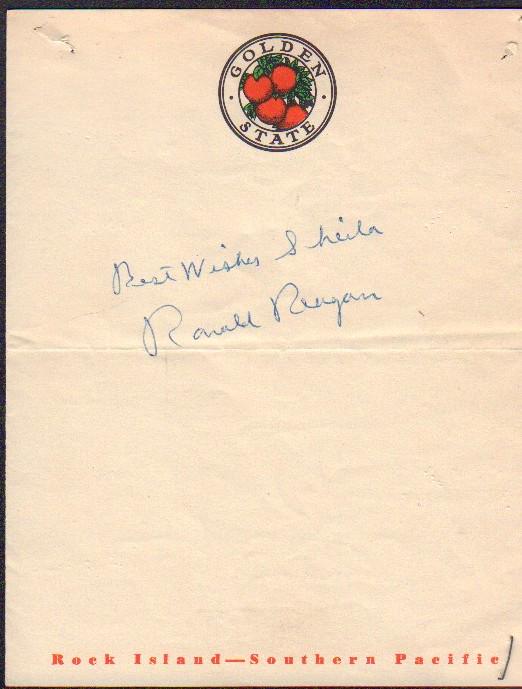 GOLDEN
STATE
Best Wishes Sheila
Ronald Reagan
Rock Island—Southern Pacific